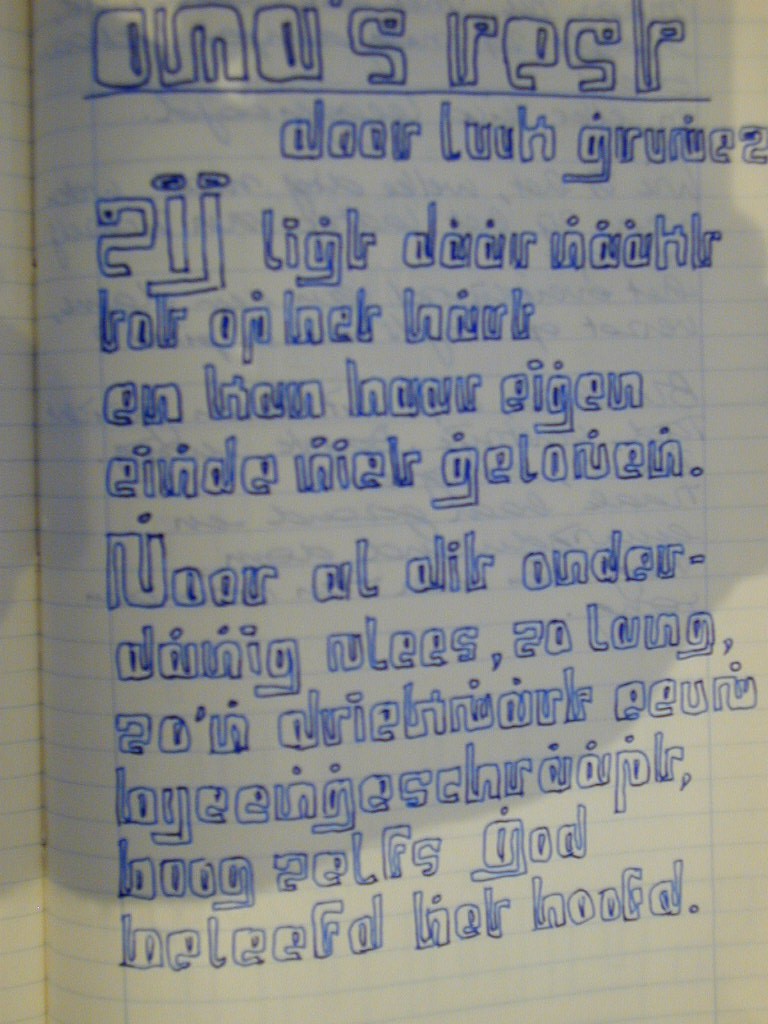 oma's rest
door luuk gruwez
zij ligt daar naakt
tot op het hart
en kan haar eigen
einde niet geloven.
Voor al dit onder-
danig vlees, zo lang,
zo'n driekwart eeuw
byeengeschraapt,
boog zelfs God
beleefd het hoofd.